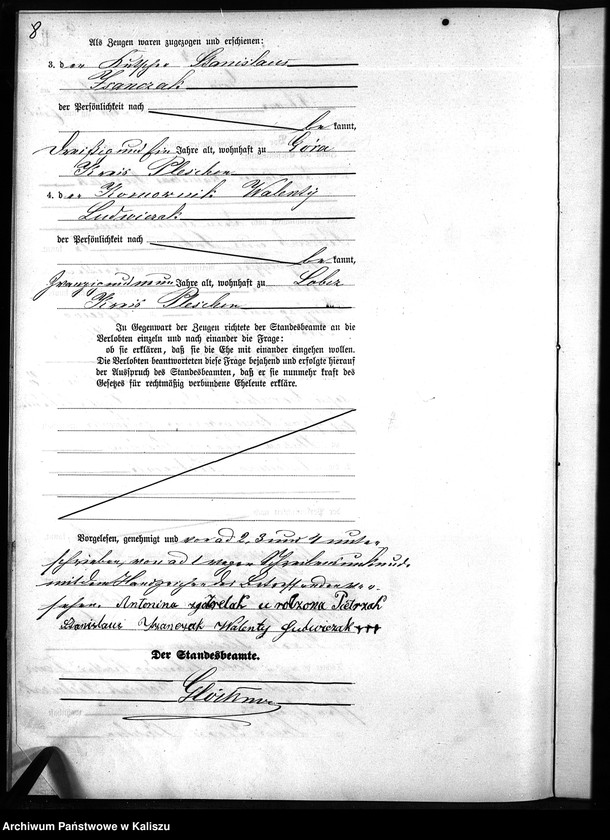 8
Als Zeugen waren zugezogen und erschienen:
3. der Kutscher Stanislaus
Franczak
der Persönlichkeit nach
be kannt,
dreißig und ein Jahre alt, wohnhaft zu Góra
Kreis Pleschen
4. der Komornik Walenty
Ludwiczak
der Persönlichkeit nach
be kannt,
zwanzig und neun Jahre alt, wohnhaft zu Lobez
Kreis Pleschen
In Gegenwart der Zeugen richtete der Standesbeamte an die
Verlobten einzeln und nach einander die Frage:
ob sie erklären, daß sie die Ehe mit einander eingehen wollen.
Die Verlobten beantworteten diese Frage bejahend und erfolgte hierauf
der Ausspruch des Standesbeamten, daß er sie nunmehr kraft des
Gesetzes für rechtmäßig verbundene Eheleute erkläre.
Vorgelesen, genehmigt und von ad 2, 3 und 4 unter
schrieben, von ad 1 wegen Schreibensunkunde
mit dem Handzeichen des Betreffenden ver
sehen. Antonina urodzona Pietrzak
Stanislaus Franczak Walenty Ludwiczak +++
Der Standesbeamte.
Glöckner
Archiwum Państwowe w Kaliszu